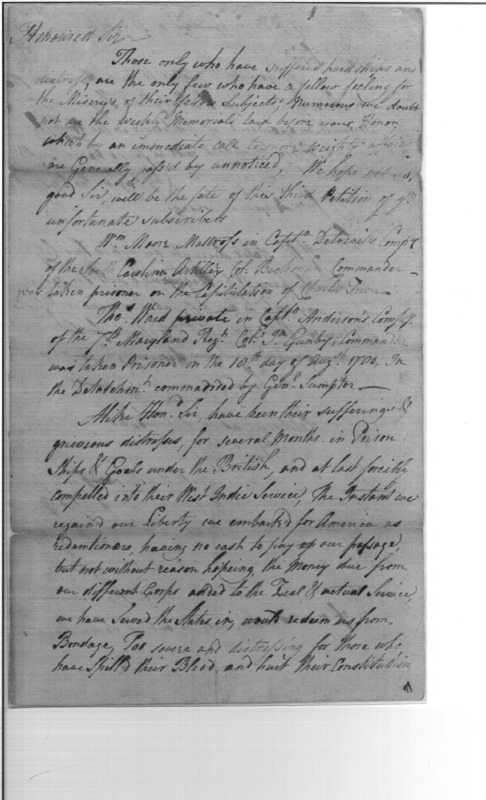 Honoured Sir
Those only who have suffered hardships and
distress, are the only few who have a fellow feeling for
the Miserys of their fellow Subjects Numerous we doubt
not are the weekly Memorials laid before your Honor,
which by an immediate call to more weighty affairs
are Generally pass'd by unnoticed, We hope not so,
good Sir, will be the fate of this third Petition of yr.
unfortunate subscribers
Wm. Moore Mattross in Captn. Compy
of the Carolina Artillery Col. Commander
was taken prisoner on the Capitulation of
Thos. Ward private in Captn. Anderson's Compy.
of the 7th. Maryland Regt. Col. Jn. Gunby, Commander
was taken Prisoner on the 18th day of Augth. 1780, In
the Detatchmt. commanded by Genl. Sumpter —
Alike Hond. Sir, have been their sufferings &
grievious distresses, for several Months in Prison
Ships & Goals under the British, and at last forcibly
compelled into their West Indie Service, The Instant we
regaind our Liberty we embarked for America as
redemtioners, having no cash to pay our passage,
but not without reason hopeing the Money due from
our different Corps added to the Zeal & actual Service,
we have Served the States in, would redeem us from
Bondage, Too severe and distressing for those who
have Spill'd their Blood, and hurt their Constitution